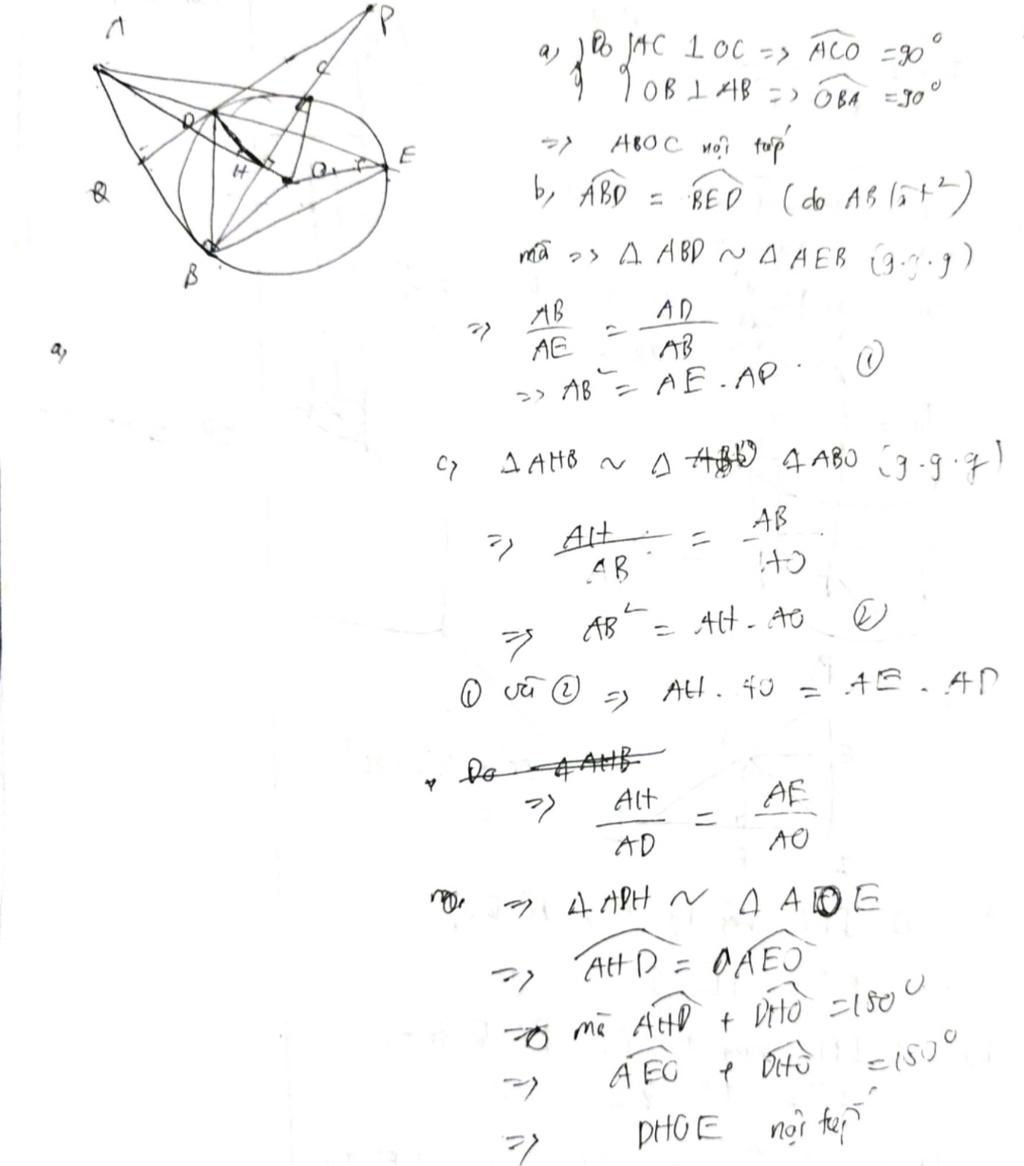 A
P
C
D
H
O
E
Q
B
a,
a, Do AC ⊥ OC => ACO = 90°
OB ⊥ AB => OBA = 90°
=> ABOC nội tiếp
b, ABD = BED (do AB là t²)
mà => Δ ABD ~ Δ AEB (g.g.g)
=> AB/AE = AD/AB
=> AB² = AE . AD ①
c, Δ AHB ~ Δ ABO (g.g.g)
=> AH/AB = AB/AO
=> AB² = AH . AO ②
① và ② => AH . AO = AE . AD
Do Δ AHB
=> AH/AD = AE/AO
=> Δ ADH ~ Δ AOE
=> AHD = AEO
=> mà AHD + DHO = 180°
=> AEO + DHO = 180°
=> DHOE nội tiếp